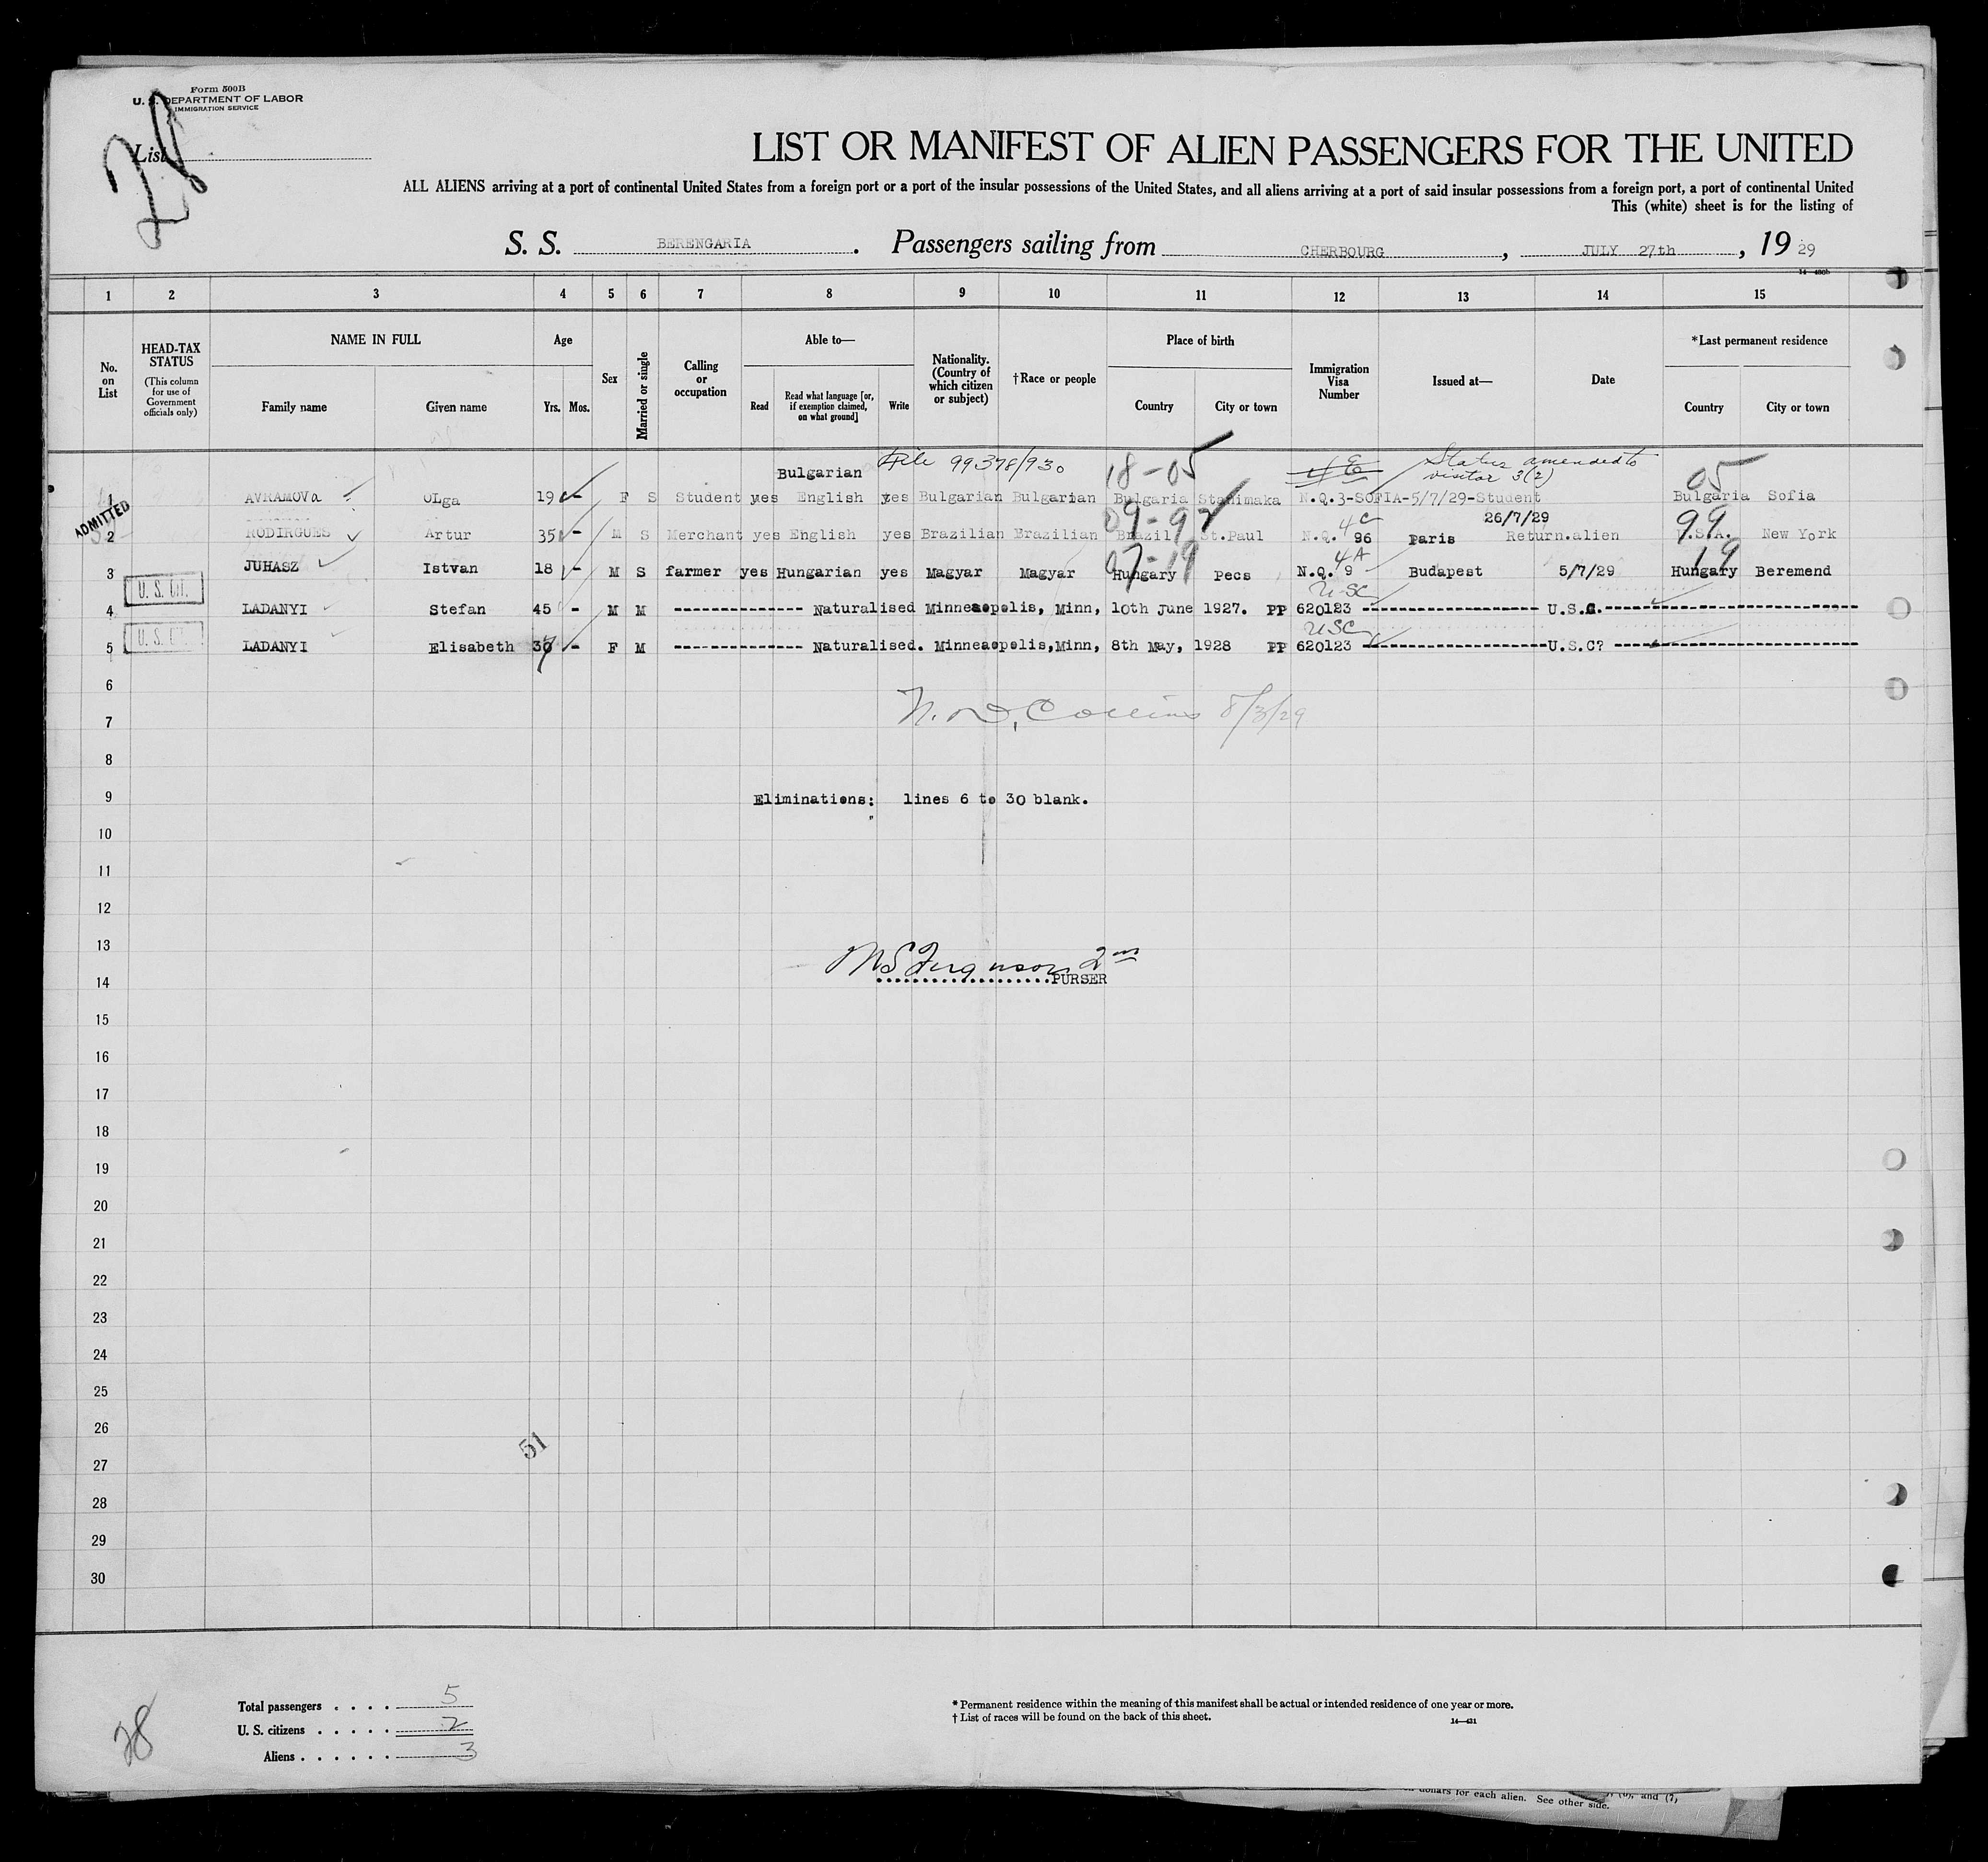 Form 500B
U. S. DEPARTMENT OF LABOR
IMMIGRATION SERVICE
List
28
LIST OR MANIFEST OF ALIEN PASSENGERS FOR THE UNITED
ALL ALIENS arriving at a port of continental United States from a foreign port or a port of the insular possessions of the United States, and all aliens arriving at a port of said insular possessions from a foreign port, a port of continental United
This (white) sheet is for the listing of
S. S. BERENGARIA. Passengers sailing from CHERBOURG, JULY 27th, 1929
1 2 3 4 5 6 7 8 9 10 11 12 13 14 15
No. on List
HEAD-TAX STATUS (This column for use of Government officials only)
NAME IN FULL
Family name Given name
Age
Yrs. Mos.
Sex
Married or single
Calling or occupation
Able to—
Read Read what language [or, if exemption claimed, on what ground] Write
Nationality. (Country of which citizen or subject)
†Race or people
Place of birth
Country City or town
Immigration Visa Number
Issued at—
Date
*Last permanent residence
Country City or town
Bulgarian File 99378/930 18-05 4 E Status amended to visitor 3(2) 05
1 AVRAMOVa OLga 19 - F S Student yes English yes Bulgarian Bulgarian Bulgaria Stanimaka N.Q.3-SOFIA-5/7/29-Student Bulgaria Sofia
ADMITTED
09-92 4C 26/7/29 99
2 RODIRGUES Artur 35 - M S Merchant yes English yes Brazilian Brazilian Brazil St.Paul N.Q. 96 Paris Return.alien U.S.A. New York
07-19 4A 19
3 JUHASZ Istvan 18 - M S farmer yes Hungarian yes Magyar Magyar Hungary Pecs N.Q. 9 Budapest 5/7/29 Hungary Beremend
U. S. CIT. USC
4 LADANYI Stefan 45 - M M -------------- Naturalised Minneaopolis, Minn, 10th June 1927. PP 620123 ------------------- U.S.C.---------------------------
U. S. CIT. USC
5 LADANYI Elisabeth 37 - F M -------------- Naturalised. Minneaopolis,Minn, 8th May, 1928 PP 620123 --------------------U.S.C? --------------------------
6
N. D. Collins 8/3/29
7
8
9 Eliminations: lines 6 to 30 blank.
"
10
11
12
13
M S Ferguson 2nd
14 ...................PURSER
15
16
17
18
19
20
21
22
23
24
25
26
51
27
28
29
30
28
Total passengers . . . . 5
U. S. citizens . . . . . 2
Aliens . . . . . . 3
* Permanent residence within the meaning of this manifest shall be actual or intended residence of one year or more.
† List of races will be found on the back of this sheet.
dollars for each alien. See other side.
and (7,